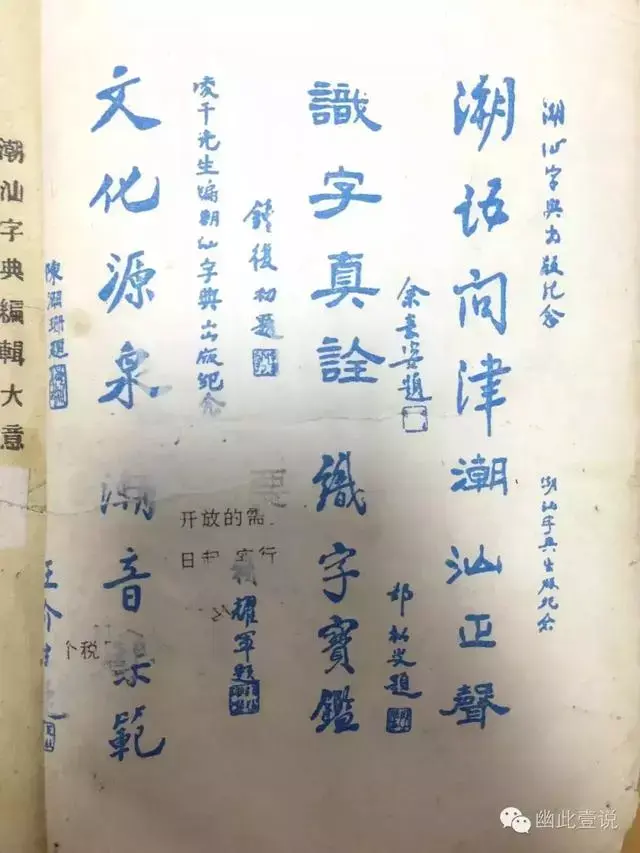 潮汕字典出版纪念
潮语问津
余 題
識字真詮
復初題
凌千先生編潮汕字典出版纪念
文化源泉
陳 珊題
潮汕字典出版纪念
潮汕正聲
題
識字寶鑑
耀军題
潮音 範
王介
开放的需
日起 实行
个税
潮汕字典編輯大意
幽此壹说